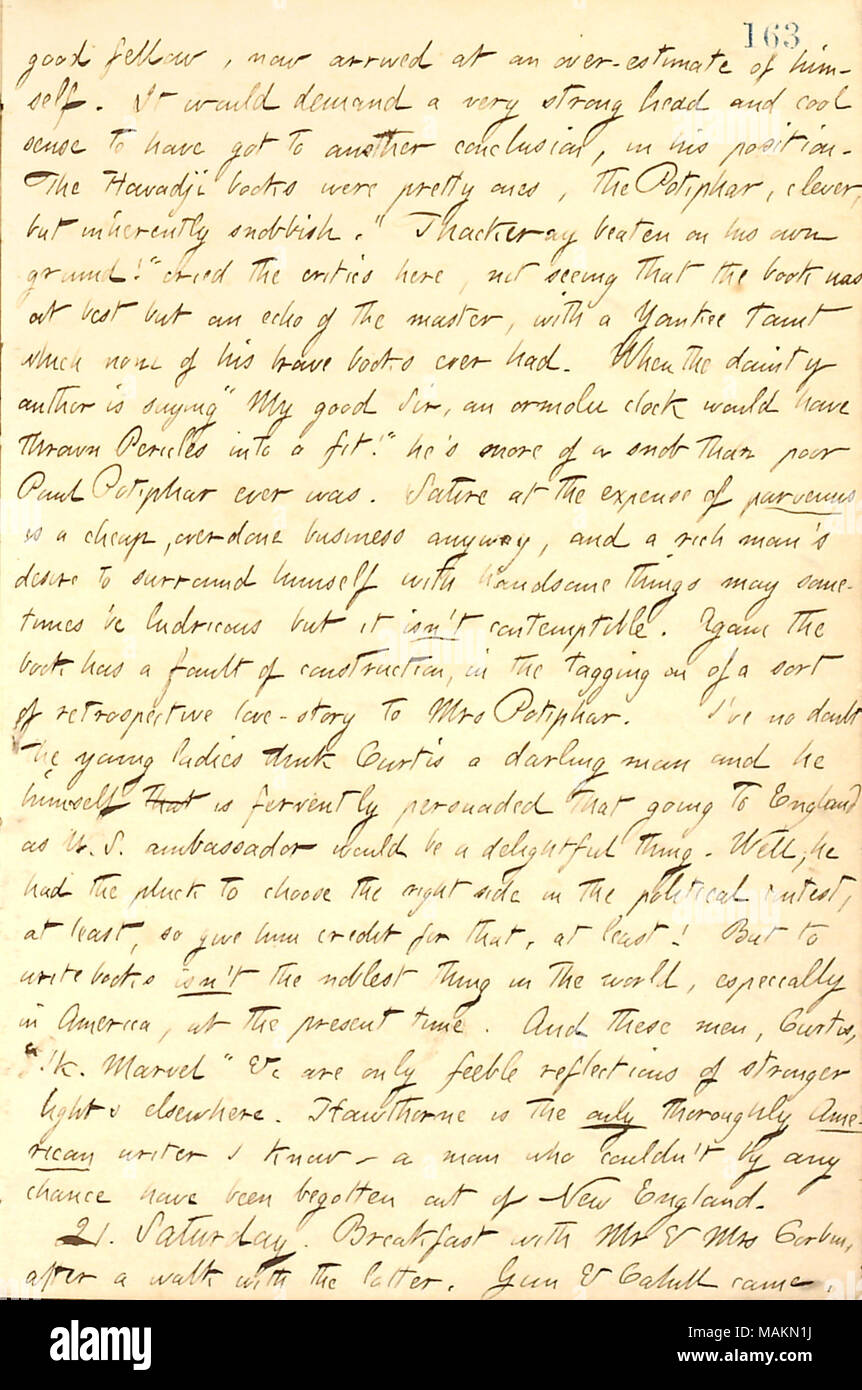 163
good fellow, now arrived at an over-estimate of him-
self. It would demand a very strong head and cool
sense to have got to another conclusion, in his position.
The Howadji books were pretty ones, the Potiphar, clever,
but inherently snobbish. "Thackeray beaten on his own
ground!" cried the critics here, not seeing that the book was
at best but an echo of the master, with a Yankee taint
which none of his brave books ever had. When the dainty
author is saying "My good Sir, an ormolu clock would have
thrown Pericles into a fit!" he's more of a snob than poor
Paul Potiphar ever was. Satire at the expense of parvenus
is a cheap, over-done business anyway, and a rich man's
desire to surround himself with handsome things may some-
times be ludricous but it isn't contemptible. Again the
book has a fault of construction, in the tagging on of a sort
of retrospective love-story to Mrs Potiphar. I've no doubt
the young ladies think Curtis a darling man and he
himself that is fervently persuaded that going to England
as U. S. ambassador would be a delightful thing. Well, he
had the pluck to choose the right side in the political contest,
at least, so give him credit for that, at least! But to
write books isn't the noblest thing in the world, especially
in America, at the present time. And these men, Curtis,
"Ik. Marvel" &c are only feeble reflections of stronger
lights elsewhere. Hawthorne is the only thoroughly Ame-
rican writer I know — a man who couldn't by any
chance have been begotten out of New England.
21. Saturday. Breakfast with Mr & Mrs Corbin,
after a walk with the latter. Gun & Cahill came.
alamy
Image ID: MAKN1J
www.alamy.com